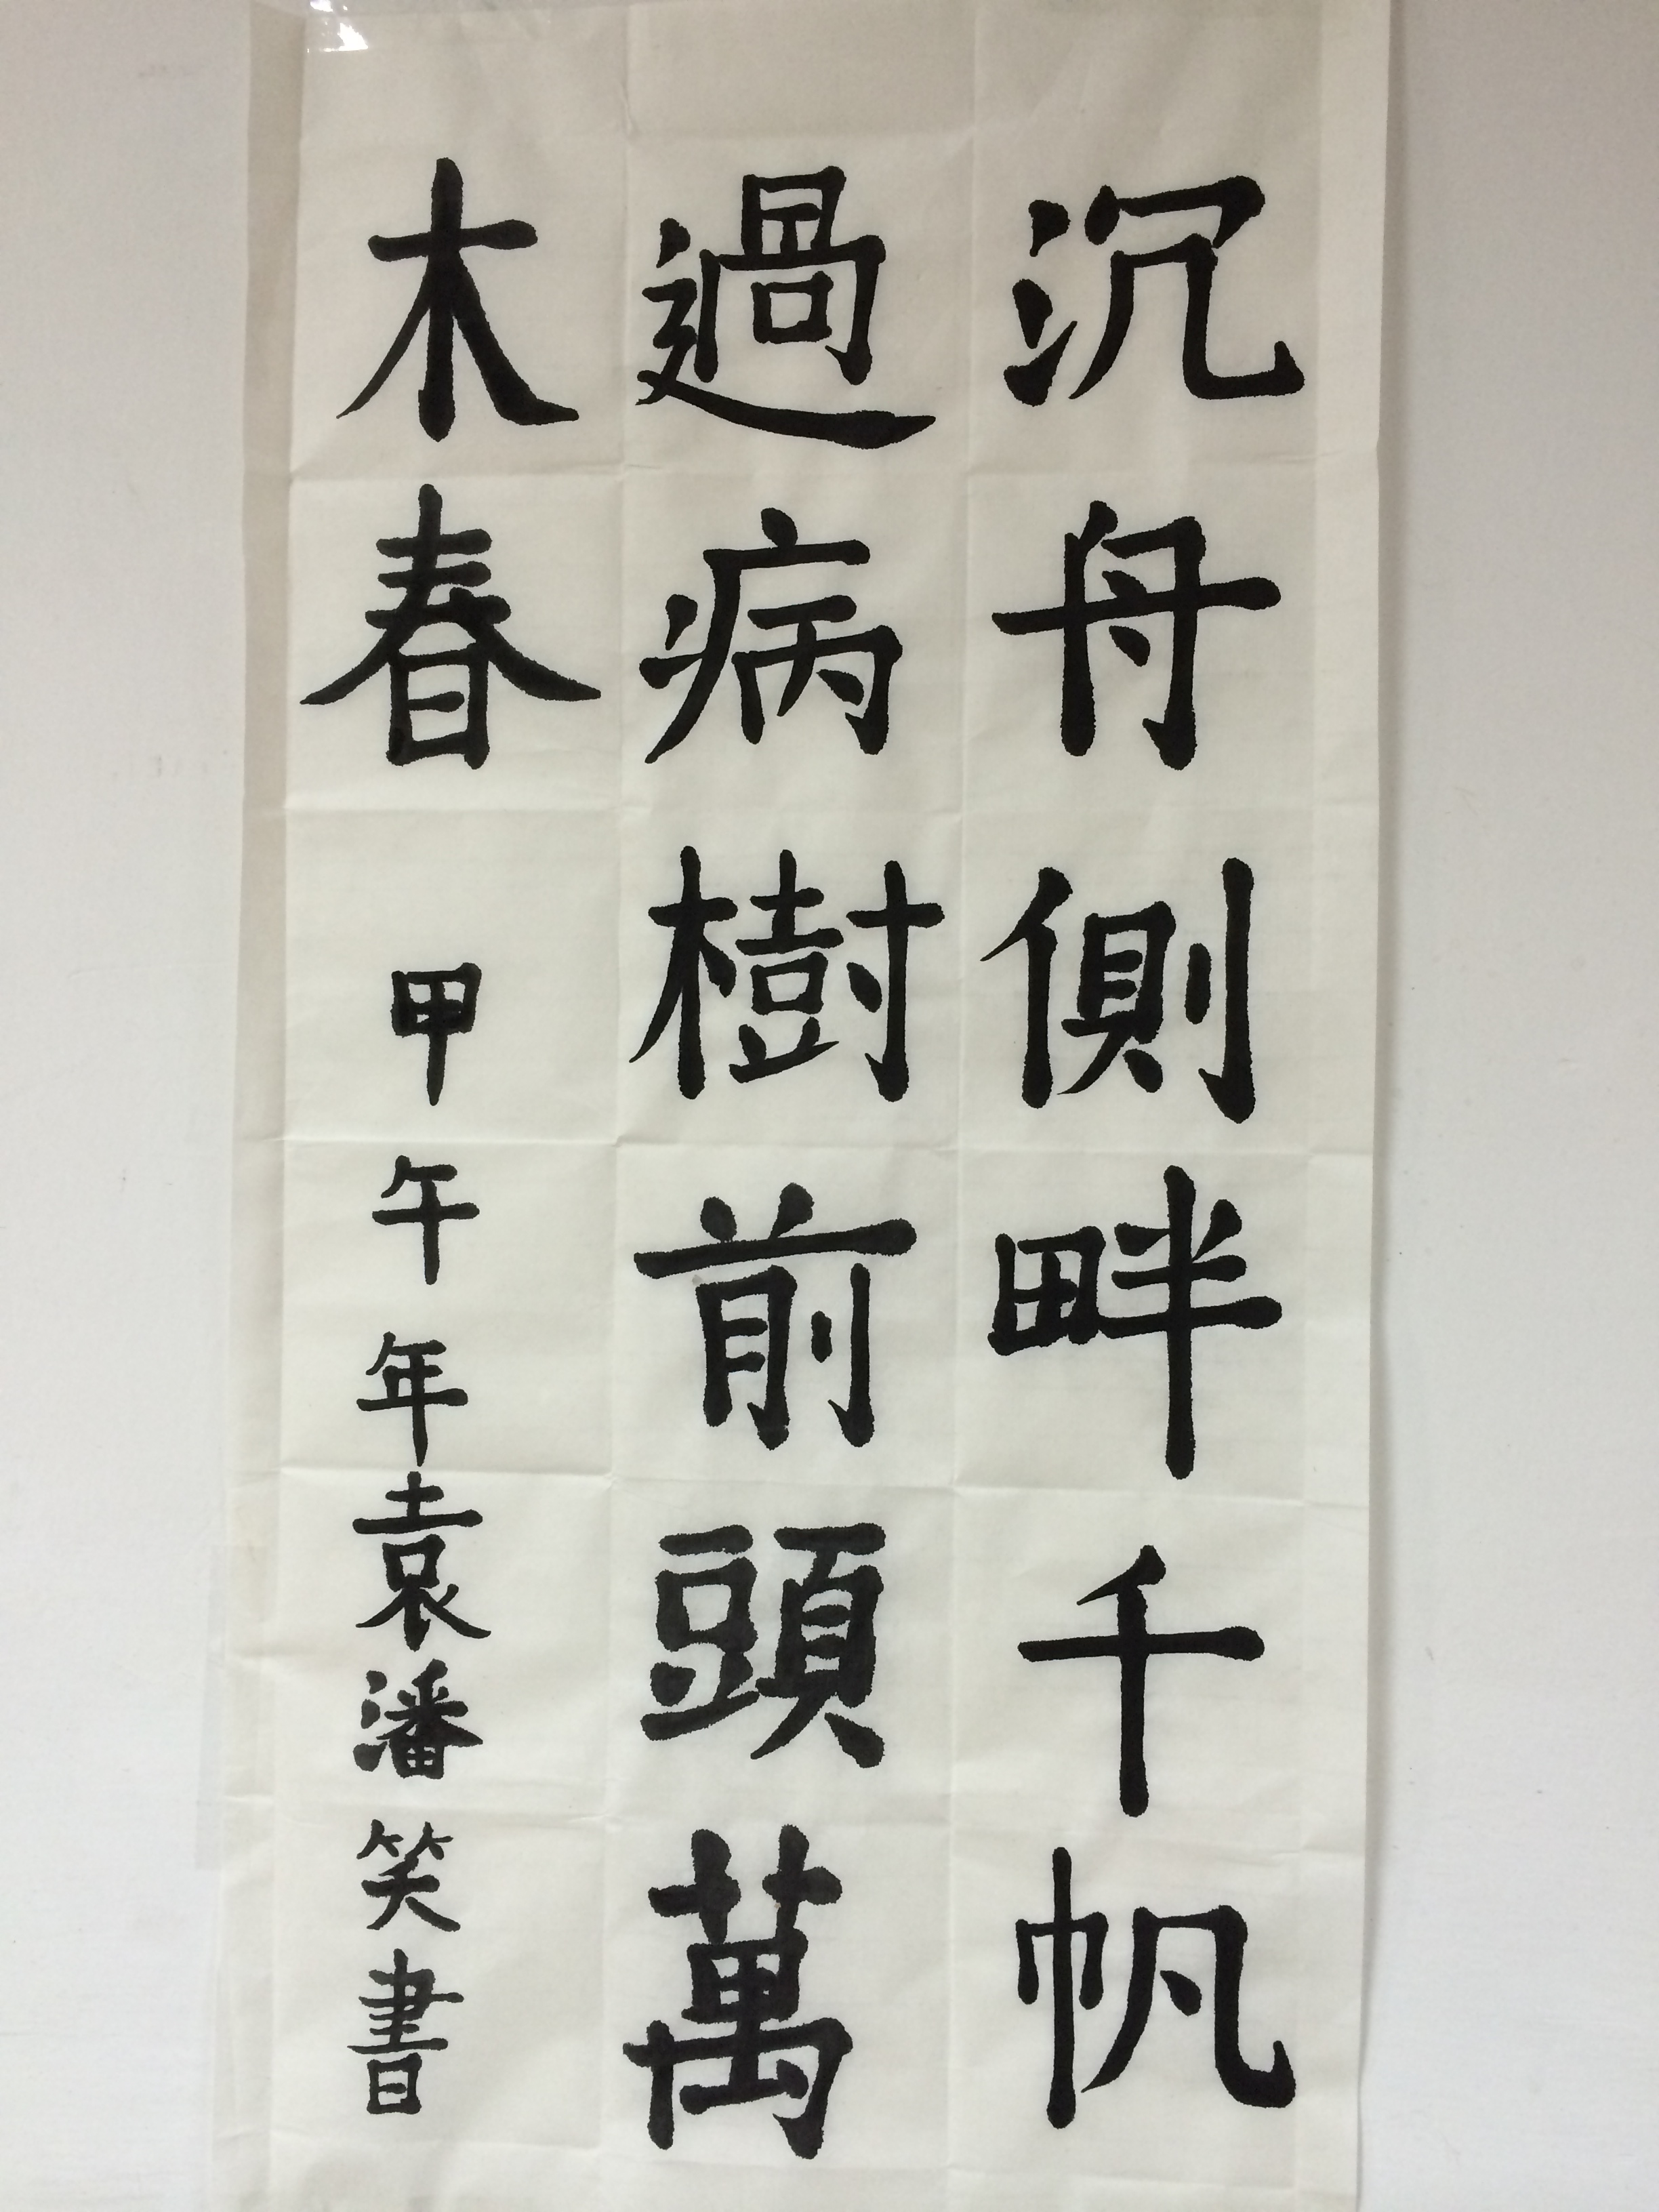 沉舟側畔千帆
過病樹前頭萬
木春 甲午年袁潘笑書